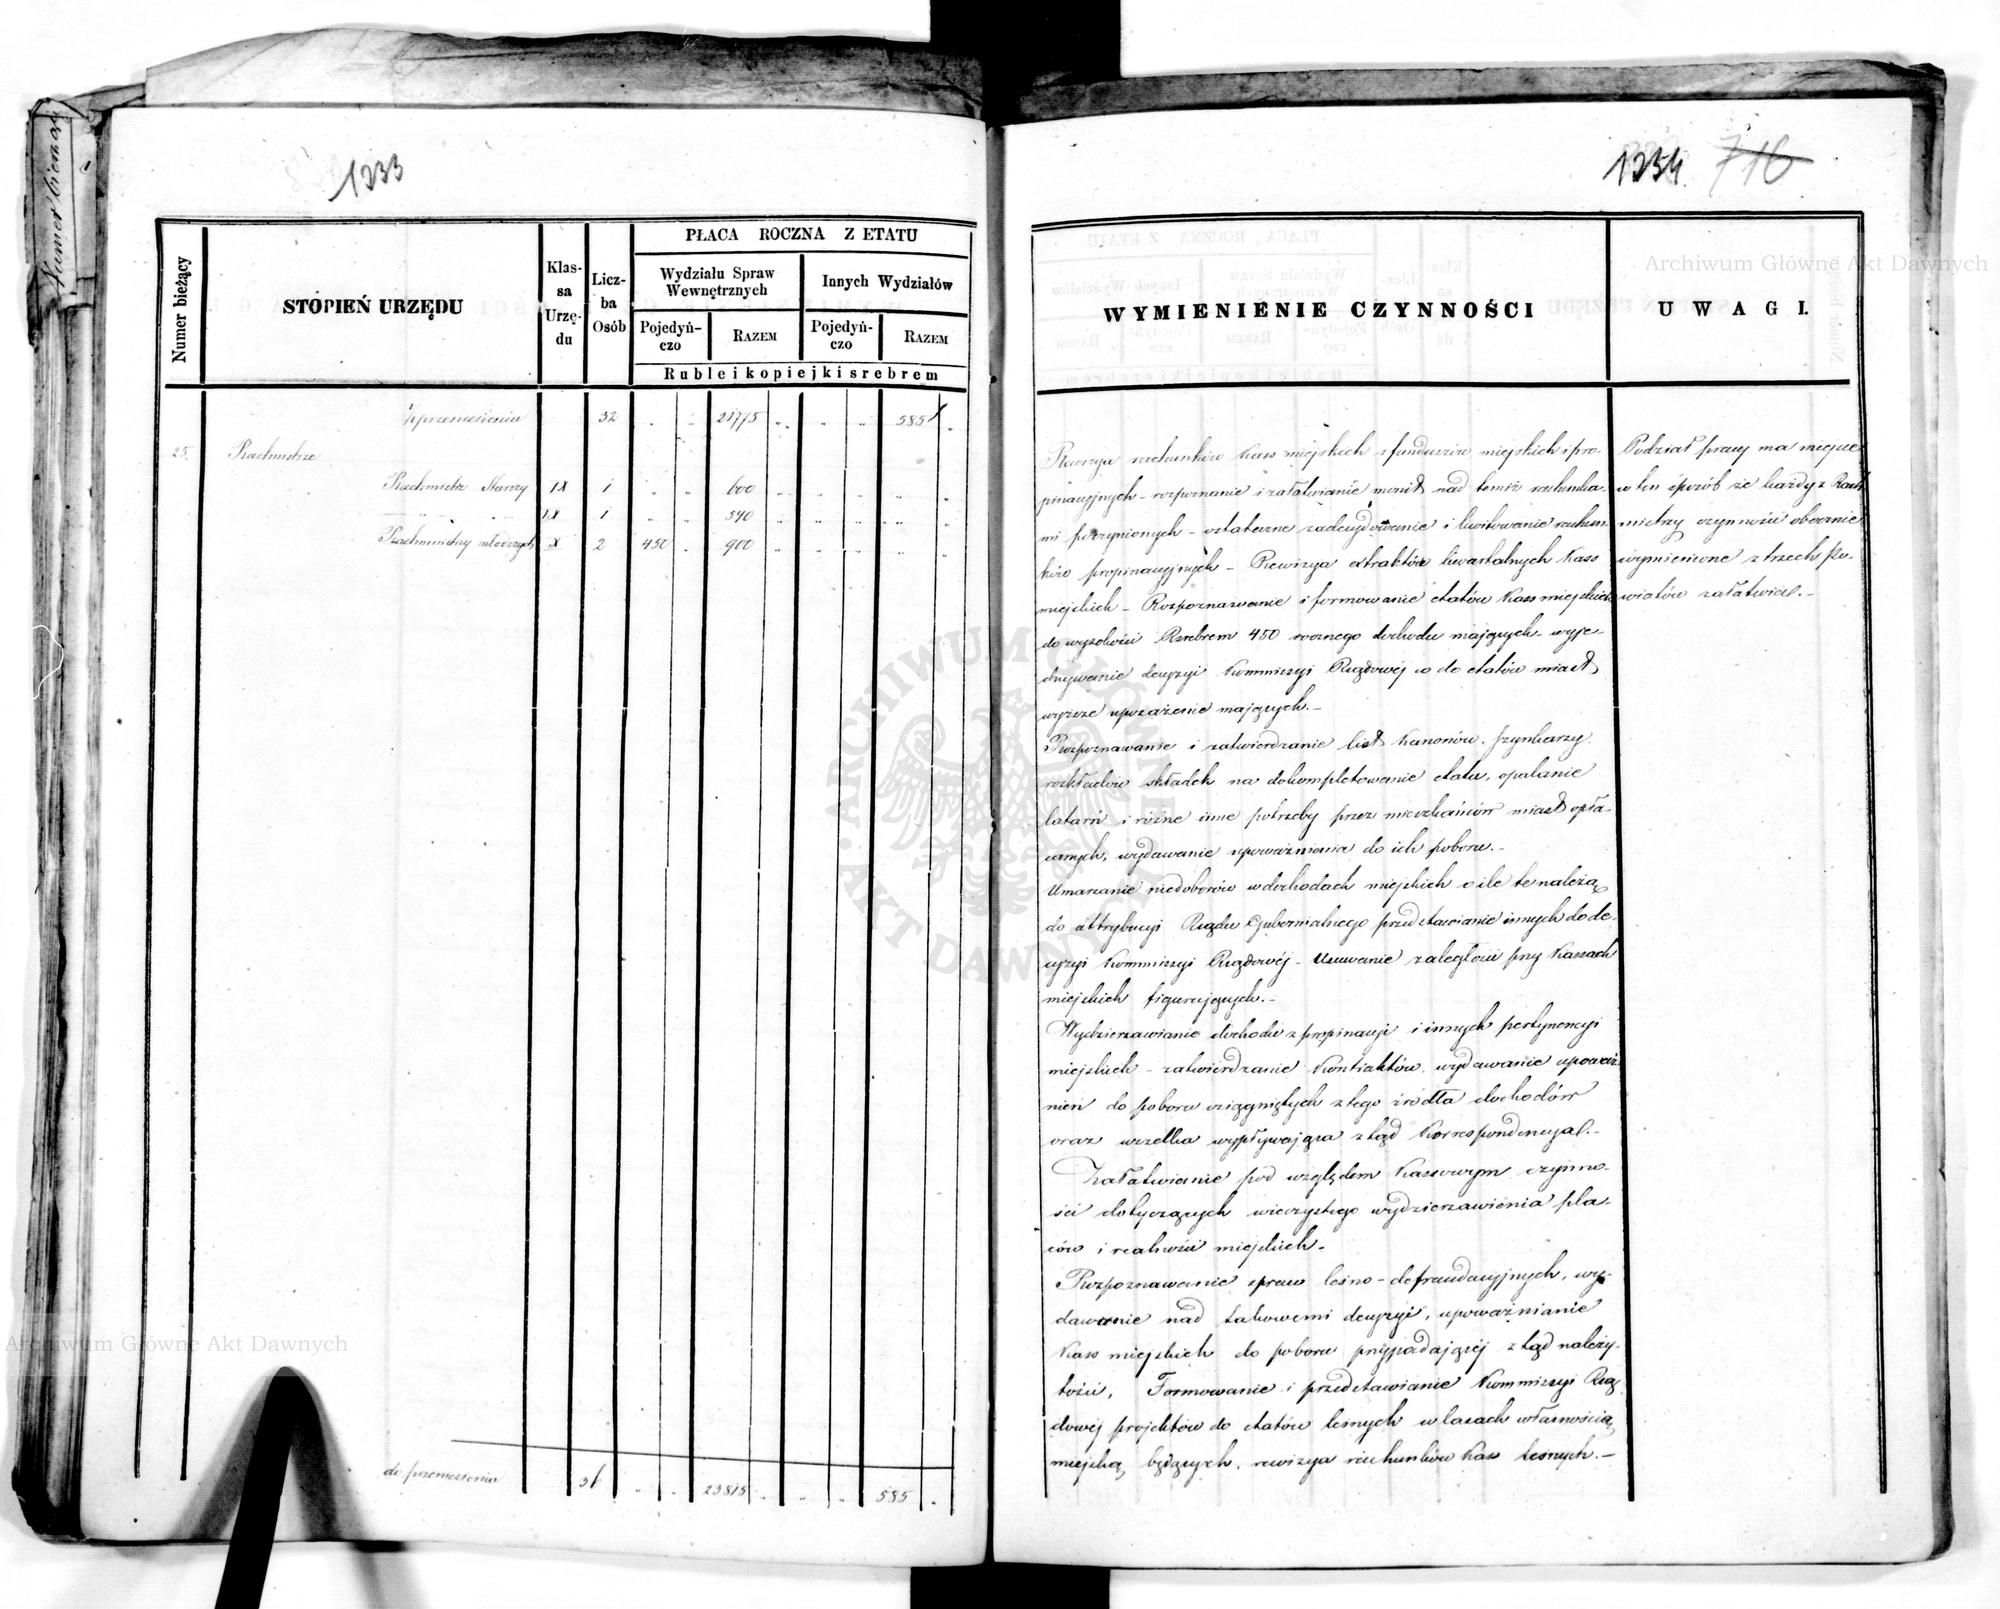 1233
Numer bieżący
STOPIEŃ URZĘDU
Klas-
sa
Urzę-
du
Licz-
ba
Osób
PŁACA ROCZNA Z ETATU
Wydziału Spraw
Wewnętrznych
Innych Wydziałów
Pojedyń-
czo
RAZEM
Pojedyń-
czo
RAZEM
Ruble i kopiejki srebrem
z przeniesienia 32 21775 585
25. Rachmistrze
Rachmistrz Starszy IX 1 600
IX 1 540
Rachmistrzy młodszych X 2 450 900
do przeniesienia 36 23815 585
1234 716
WYMIENIENIE CZYNNOŚCI
UWAGI.
Rewizya rachunków Kass miejskich z funduszów miejskich i pro-
pinacyjnych – rozpoznanie i załatwianie monit nad temiż rachunka-
mi poczynionych – ostateczne zadecydowanie i kwitowanie rachun-
ków propinacyjnych – Rewizya extraktów kwartalnych Kass
miejskich – Rozpoznawanie i formowanie etatów Kass miejskich
do wysokości Rsrebrem 450 rocznego dochodu mających – wyje-
dnywanie decyzyi Kommissyi Rządowéj co do etatów miast
wyższe uposażenie mających. –
Rozpoznawanie i zatwierdzanie list Kanonów, szynkarzy,
rozkładów składek na dokompletowanie etatu, opalanie
latarń i różne inne potrzeby przez mieszkańców miast opła-
canych, wydawanie upoważnienia do ich poboru. –
Umarzanie niedoborów w dochodach miejskich o ile te należą
do attrybucyi Rządu Gubernialnego przedstawianie innych do de-
cyzyi Kommissyi Rządowéj – Usuwanie zaległości przy Kassach
miejskich figurujących. –
Wydzierzawianie dochodu z propinacyi i innych pertynencyi
miejskich – zatwierdzanie Kontraktów, wydawanie upoważ-
nień do poboru osiągniętych z tego źródła dochodów
oraz wszelka wypływająca ztąd Korrespondencya. –
Załatwianie pod względem Kassowym czynno-
ści dotyczących wieczystego wydzierzawienia pla-
ców i realności miejskich –
Rozpoznawanie spraw leśno – defraudacyjnych, wy-
dawanie nad takowemi decyzyi, upoważnianie
Kass miejskich do poboru przypadającéj ztąd należy-
tości, Formowanie i przedstawianie Kommissyi Rzą-
dowéj projektów do etatów leśnych w lasach własnością
miejską będących, rewizya rachunków Kass leśnych. –
Podział pracy ma miejsce
w ten sposób że każdy z Rach-
mistrzy czynności obocznie
wymienione z trzech Po-
wiatów załatwia. –
Archiwum Główne Akt Dawnych
Archiwum Główne Akt Dawnych
ARCHIWUM GŁÓWNE AKT DAWNYCH